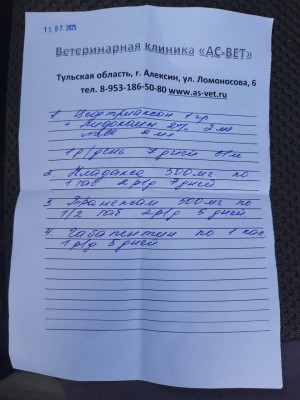 11.07.2025
Ветеринарная клиника «АС-ВЕТ»
Тульская область, г. Алексин, ул. Ломоносова, 6
тел. 8-953-186-50-80 www.as-vet.ru
1. Цефтриаксон 1 гр
+ Лидокаин 2% 2 мл
мл
1 р/день 7 дней в/м
2. 500 мг по
1 таб 2 р/д 7 дней
3. Транексам 500 мг по
1/2 таб 2 р/д 5 дней
4. Габапентин по 1 кап
1 р/д 5 дней